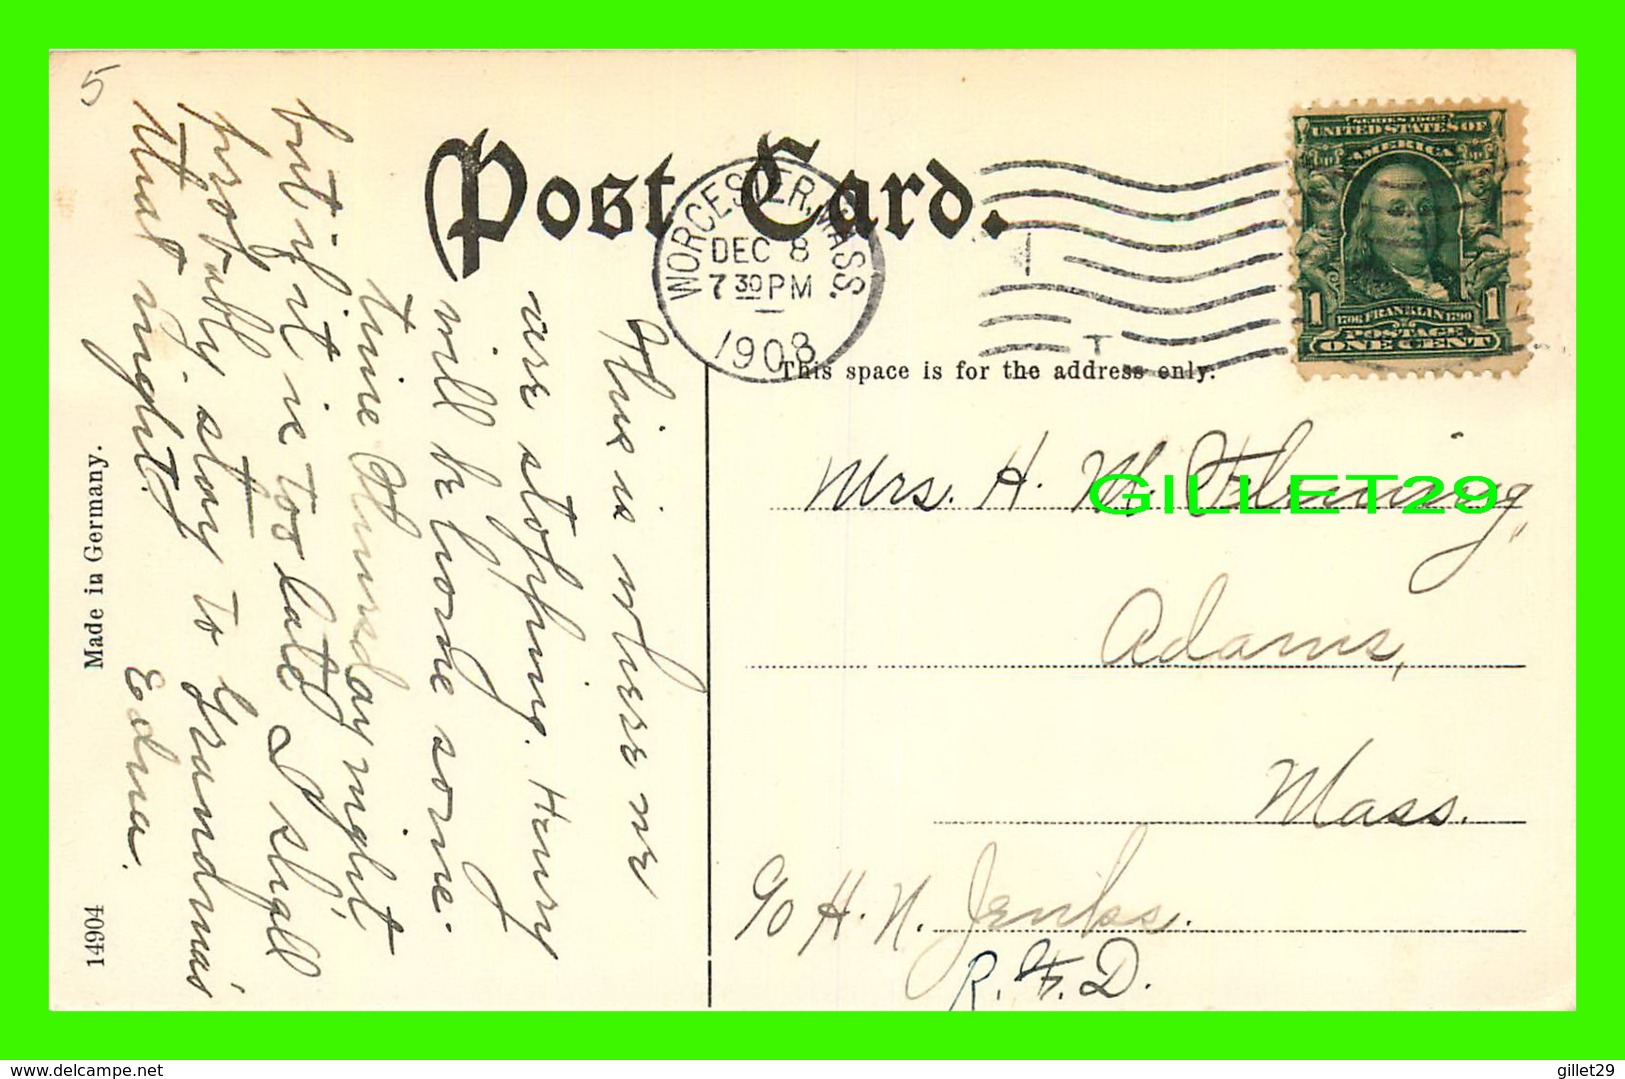 5
Post Card.
WORCESTER, MASS.
DEC 8
7 30 PM
1908
SERIES 1902
UNITED STATES OF
AMERICA
1706 FRANKLIN 1790
1 1
POSTAGE
ONE CENT
This space is for the address only.
This is where we
are stopping. Henry
will be home some-
time Thursday night
but if it is too late I shall
probably stay to Grandma's
that night.
Edna.
Mrs. H. M. Fleming,
Adams,
Mass.
c/o H. N. Jenks.
R.F.D.
Made in Germany.
14904
GILLET29
www.delcampe.net
gillet29